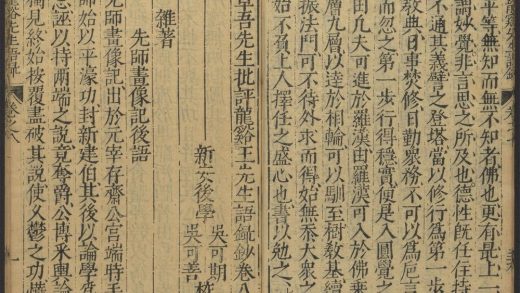 平等無知而無不知者佛也更有是上一
謂妙覺非言思之所及也德性既任住持
不通其義譬之登塔當以修行為第一步
教典日事焚修日勤衆務不可以為卮言
而忽之第一步行得穩實便是入圓覺之
田凡夫可進於羅漢由羅漢可入於佛乗
層九層以達於相輪可以馴至樹教基續
振法門可不待外求而得始無忝大衆之
始不負上人擇任之盛心也書以勉之
卓吾先生批評龍谿王先生語錄鈔卷八
新安後學
吳可期
吳可善
雜著
先師畫像記後語
先師畫像記出於元宰存齋公宮端時手
師始以平濠功封新建伯其後以論學
忌誣以持兩端之說竟奪爵公博采輿論
獨見終始按覆盡破其說使久鬱之功
卷之八
一